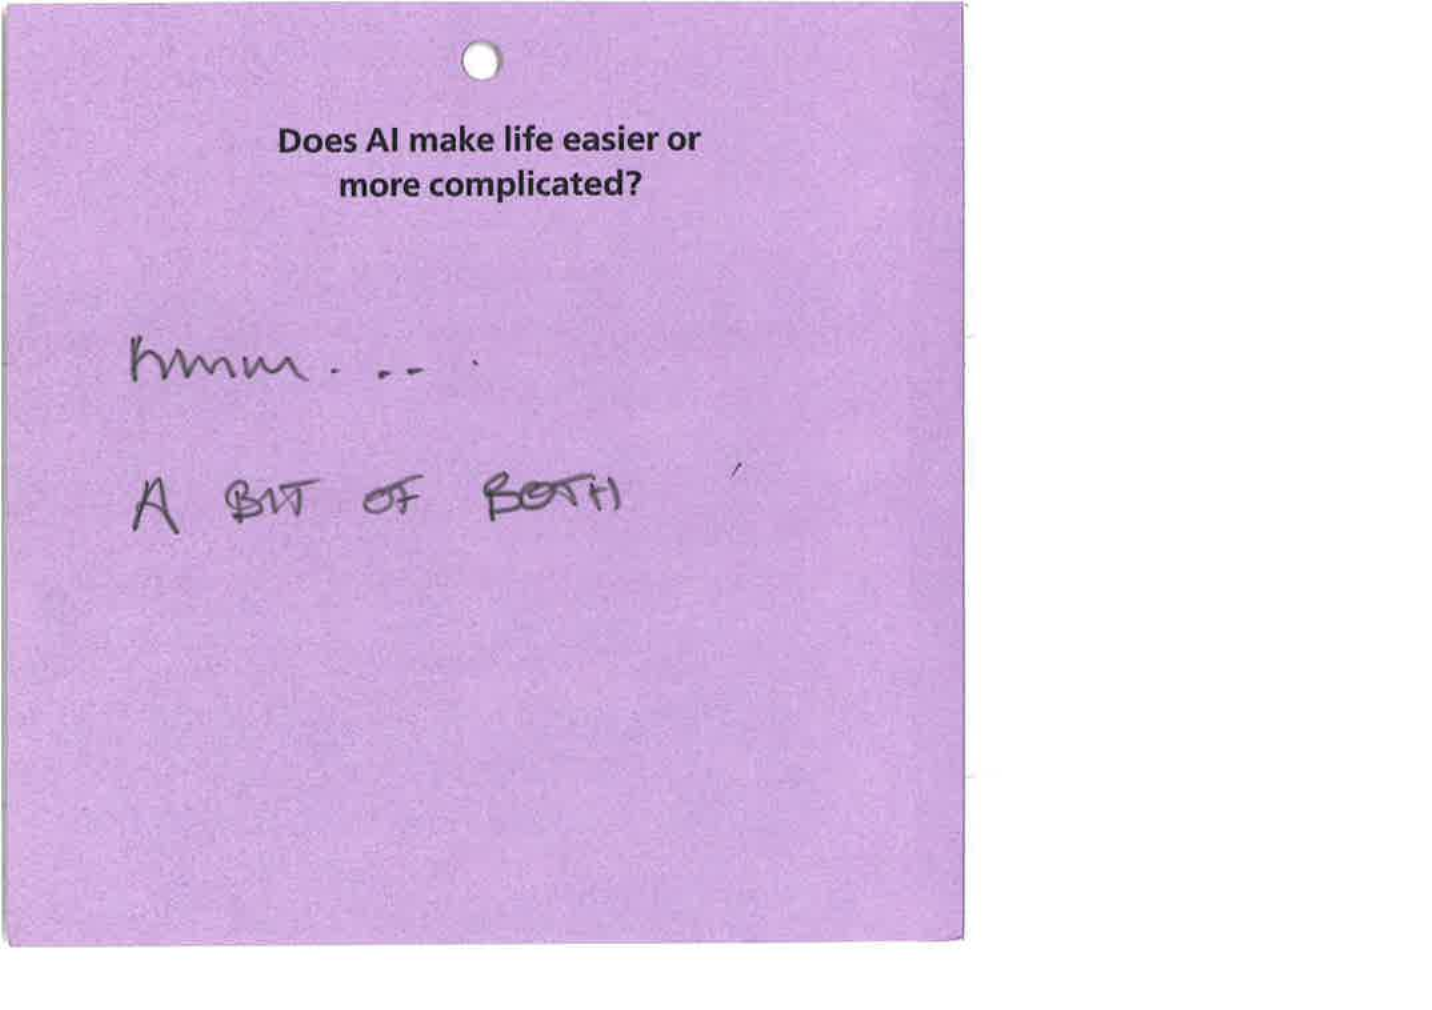 Does AI make life easier or
more complicated?
hmmm.....
A BIT OF BOTH